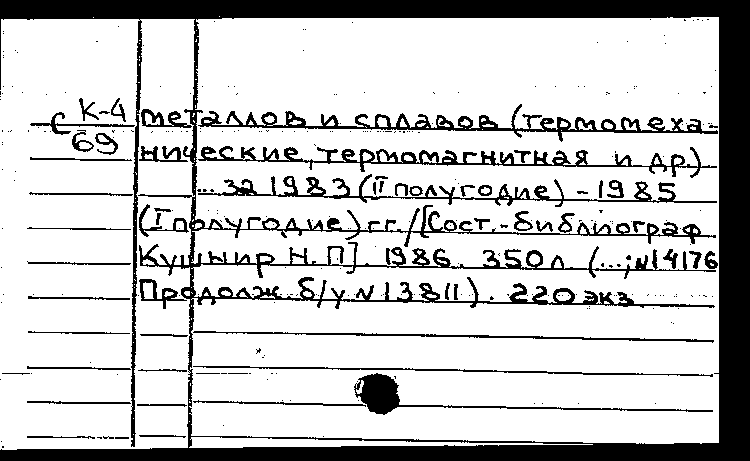 С К-4/69
металлов и сплавов (термомеха-
нические, термомагнитная и др.)
...за 1983 (II полугодие) - 1985
(I полугодие) гг. /[Сост.-библиограф
Кушнир Н. П]. 1986. 350 л. (...; №14176
Продолж. б/у №13811). 220 экз.